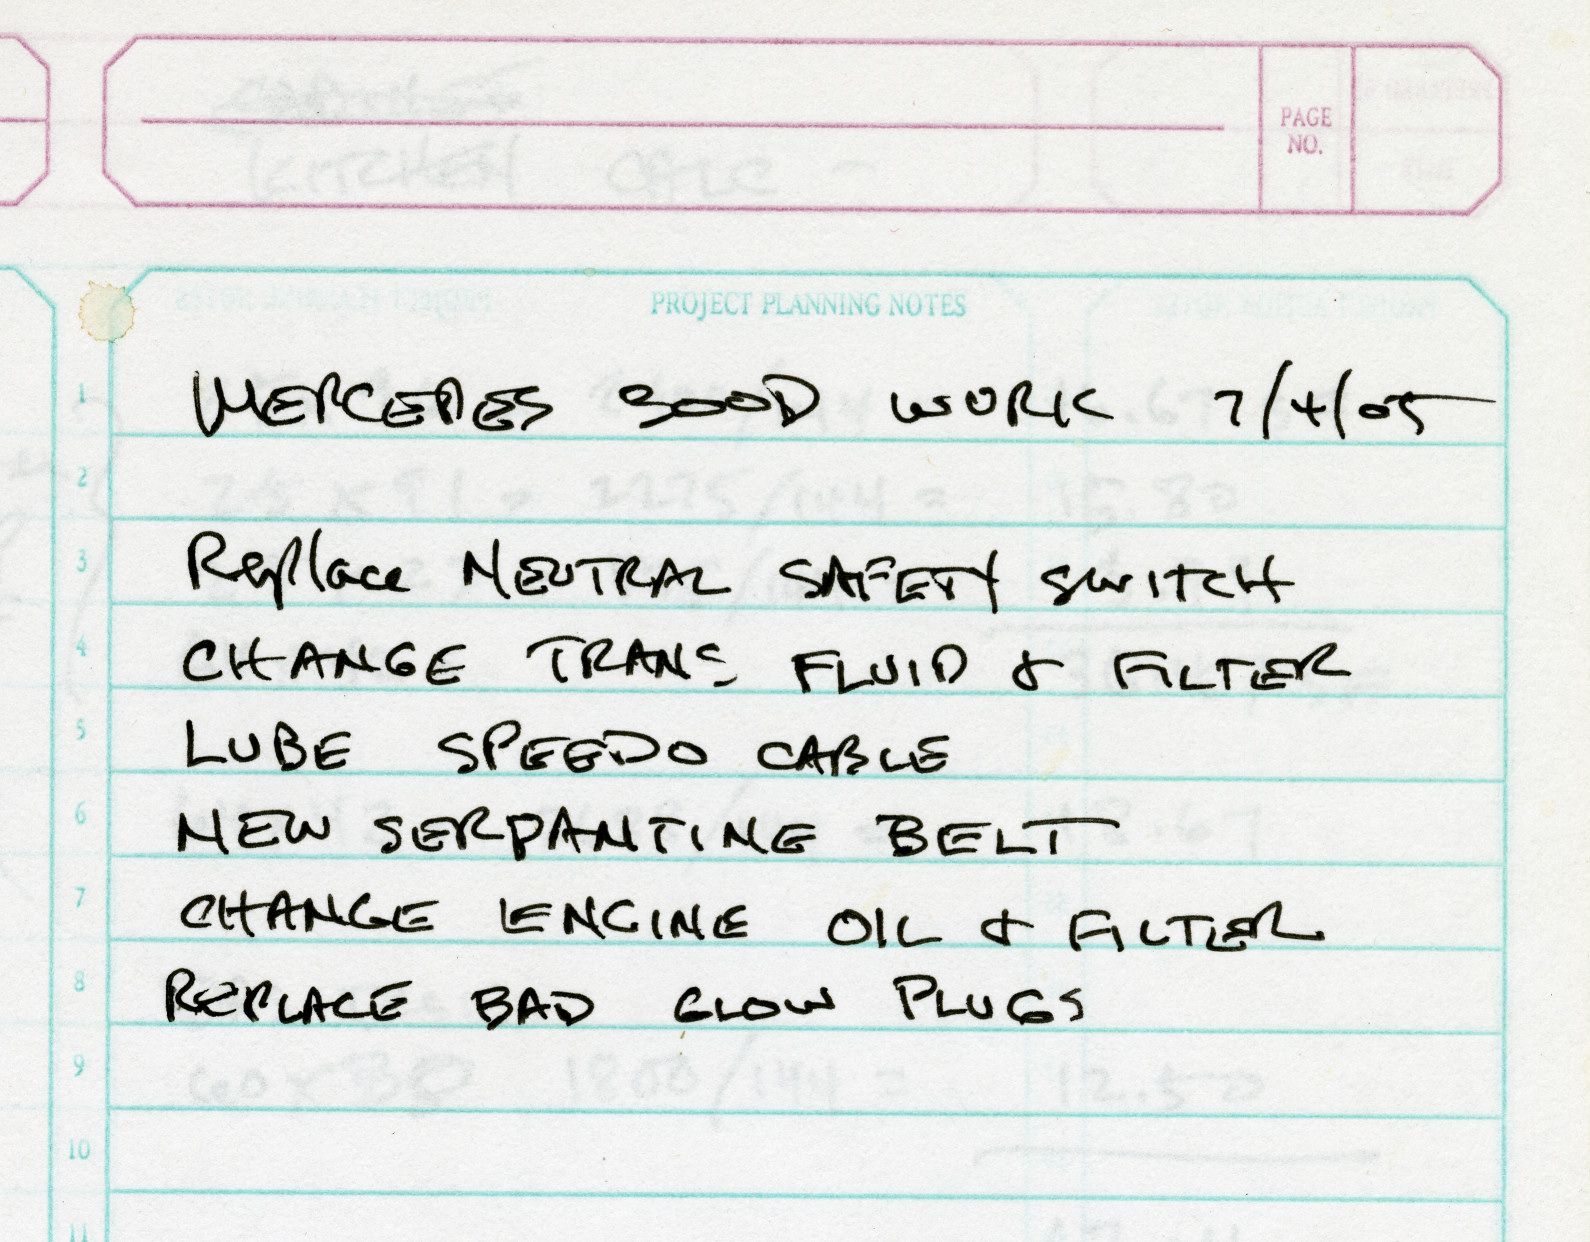 PAGE
NO.
PROJECT PLANNING NOTES
1 MERCEDES 300D WORK 7/4/05
2
3 Replace NEUTRAL SAFETY SWITCH
4 CHANGE TRANS FLUID & FILTER
5 LUBE SPEEDO CABLE
6 NEW SERPANTINE BELT
7 CHANGE ENGINE OIL & FILTER
8 REPLACE BAD GLOW PLUGS
9
10
11